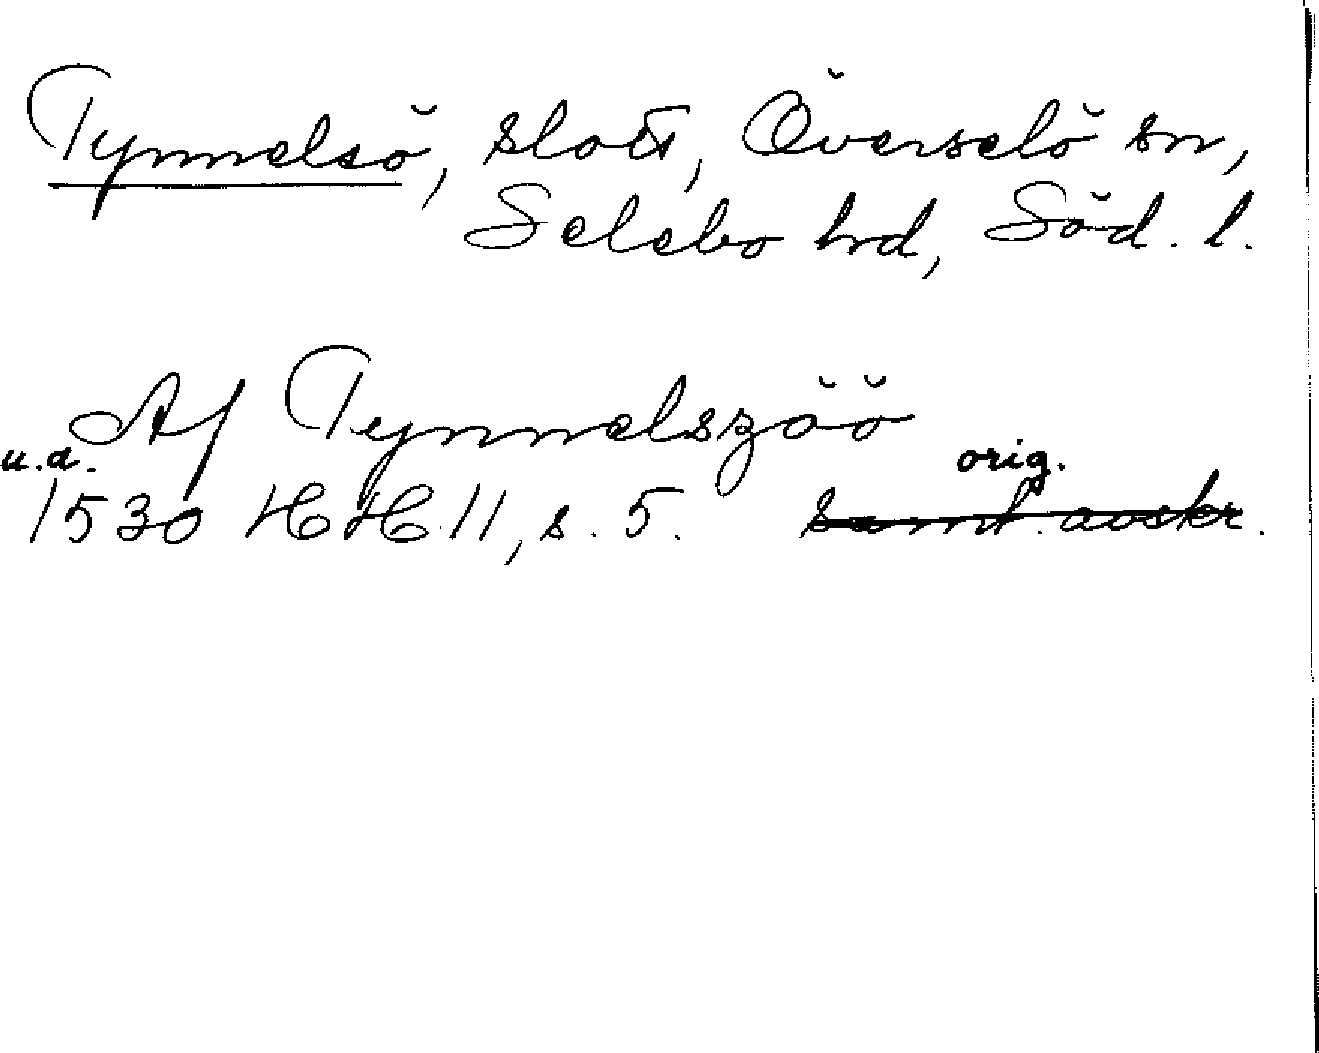 Tynnelsö, slott, Överselö sn,
Selebo hrd, Söd. l.
Af Tynnelszöö
u.d. orig.
1530 HH 11, s. 5. samt. avskr.